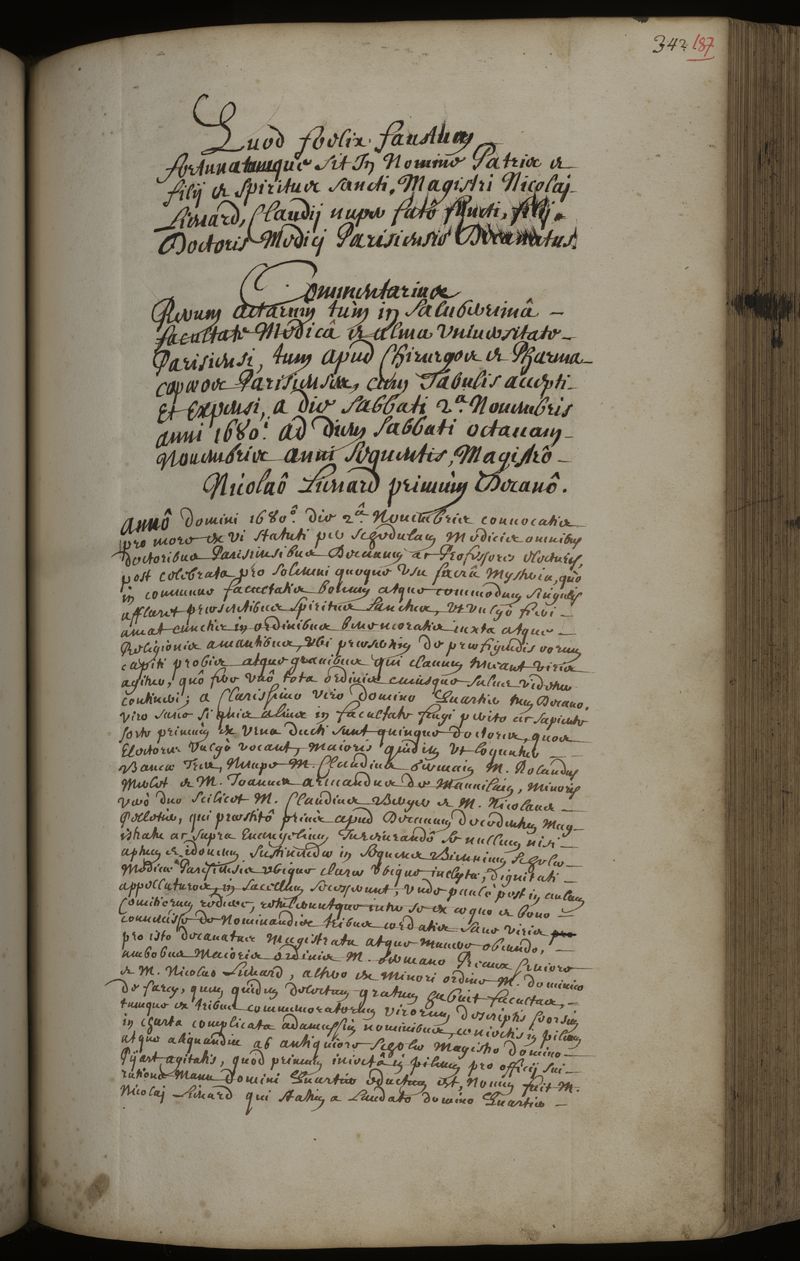 342 187
Quod foelix faustum
fortunatumque sit In Nomine Patris et
filij et Spiritus sancti, Magistri Nicolaj
Lienard, Claudij nuper fatô functi, filij
Doctoris Medicj Parisiensis Decanatus.
Commentarius
Rerum actarum tum in saluberrimâ
facultate Medicâ et alma Vniuersitate
Parisiensi, tum apud Chirurgos et Pharma
copoeos Parisienses, cum Tabulis accepti
Et Expensi, a die Sabbati 2ª. Nouembris
anni 1680i. ad diem Sabbati octauam
Nouembris anni Sequentis, Magistrô
Nicolaô Lienard primum Decanô.
Annô Domini 1680º. die 2ª. Nouembris conuocatis
pro more ex vi statuti per schedulam Medicis omnibus
doctoribus Parisiensibus Decanum ac Professores electuris,
post celebrata pro solemni quoque usu sacra Mysteria, quo
in commune facultatis bonum atque commodum singulis
afflaret praesentibus Spiritus Sanctus, vt vulgò fieri
amat cunctis in ordinibus bene moratis iuxta atque
Religionis amantibus, vbi praesertim de praeficiendis eorum
capiti probis atque grauibus qui clauum teneant viris
agitur, quô fere vnô tota ordinis cuiusque salus videtur
contineri; a Clarissimo viro Domino Quartier tum Decano,
viro sane si quis alius in facultate frugi perito ac sapiente
sorte primum ex vrna ducti sunt quinque doctores, quos
Electores vulgò vocant, maioris quidem vt loquuntur
Bancae Tres, Nempe M. Claudius Germain M. Rolandus
Merlot et M. Joannes armandus de Mauuilain, minoris
verò duo scilicet M. Claudius Berger et M. Nicolaus
Pelletier, qui praestitô prius apud Decanum decedentem Mag-
istratu ac supra Euangelium Jurejurandô se nullum nisi
aptum et idoneum sustinendae in sequens Biennium scholae
Medicae Parisiensis vbique clarae vbique inclytae, dignitati
appellaturos, in sacellum secesserunt, vnde paulò post in aulam
Comitiorum reduces, retulerunt inter se ex aequo et bono
conuenisse de Nominandis tribus cordatis sane viris
pro isto decanatus Magistratu atque munere obeundo,
ambobus Maioris ordinis M. Germano Preaux seniore
et M. Nicolao Lienard, altero ex minori ordine M. Dominico
de farcy, quem quidem delectum gratum habuit facultas,
tumque ex tribus commemoratorum virorum descriptis seorsim
in charta complicata adamussim nominibus, coniectis in pileum
atque aliquandiu ab antiquiore scholae Magistro domino
Pijart agitatis, quod primum iniecta in pileum pro officij sui
ratione manu Domini Quartier eductum est, Nomen fuit M.
Nicolaj Lienard qui statim a Laudato domino Quartier